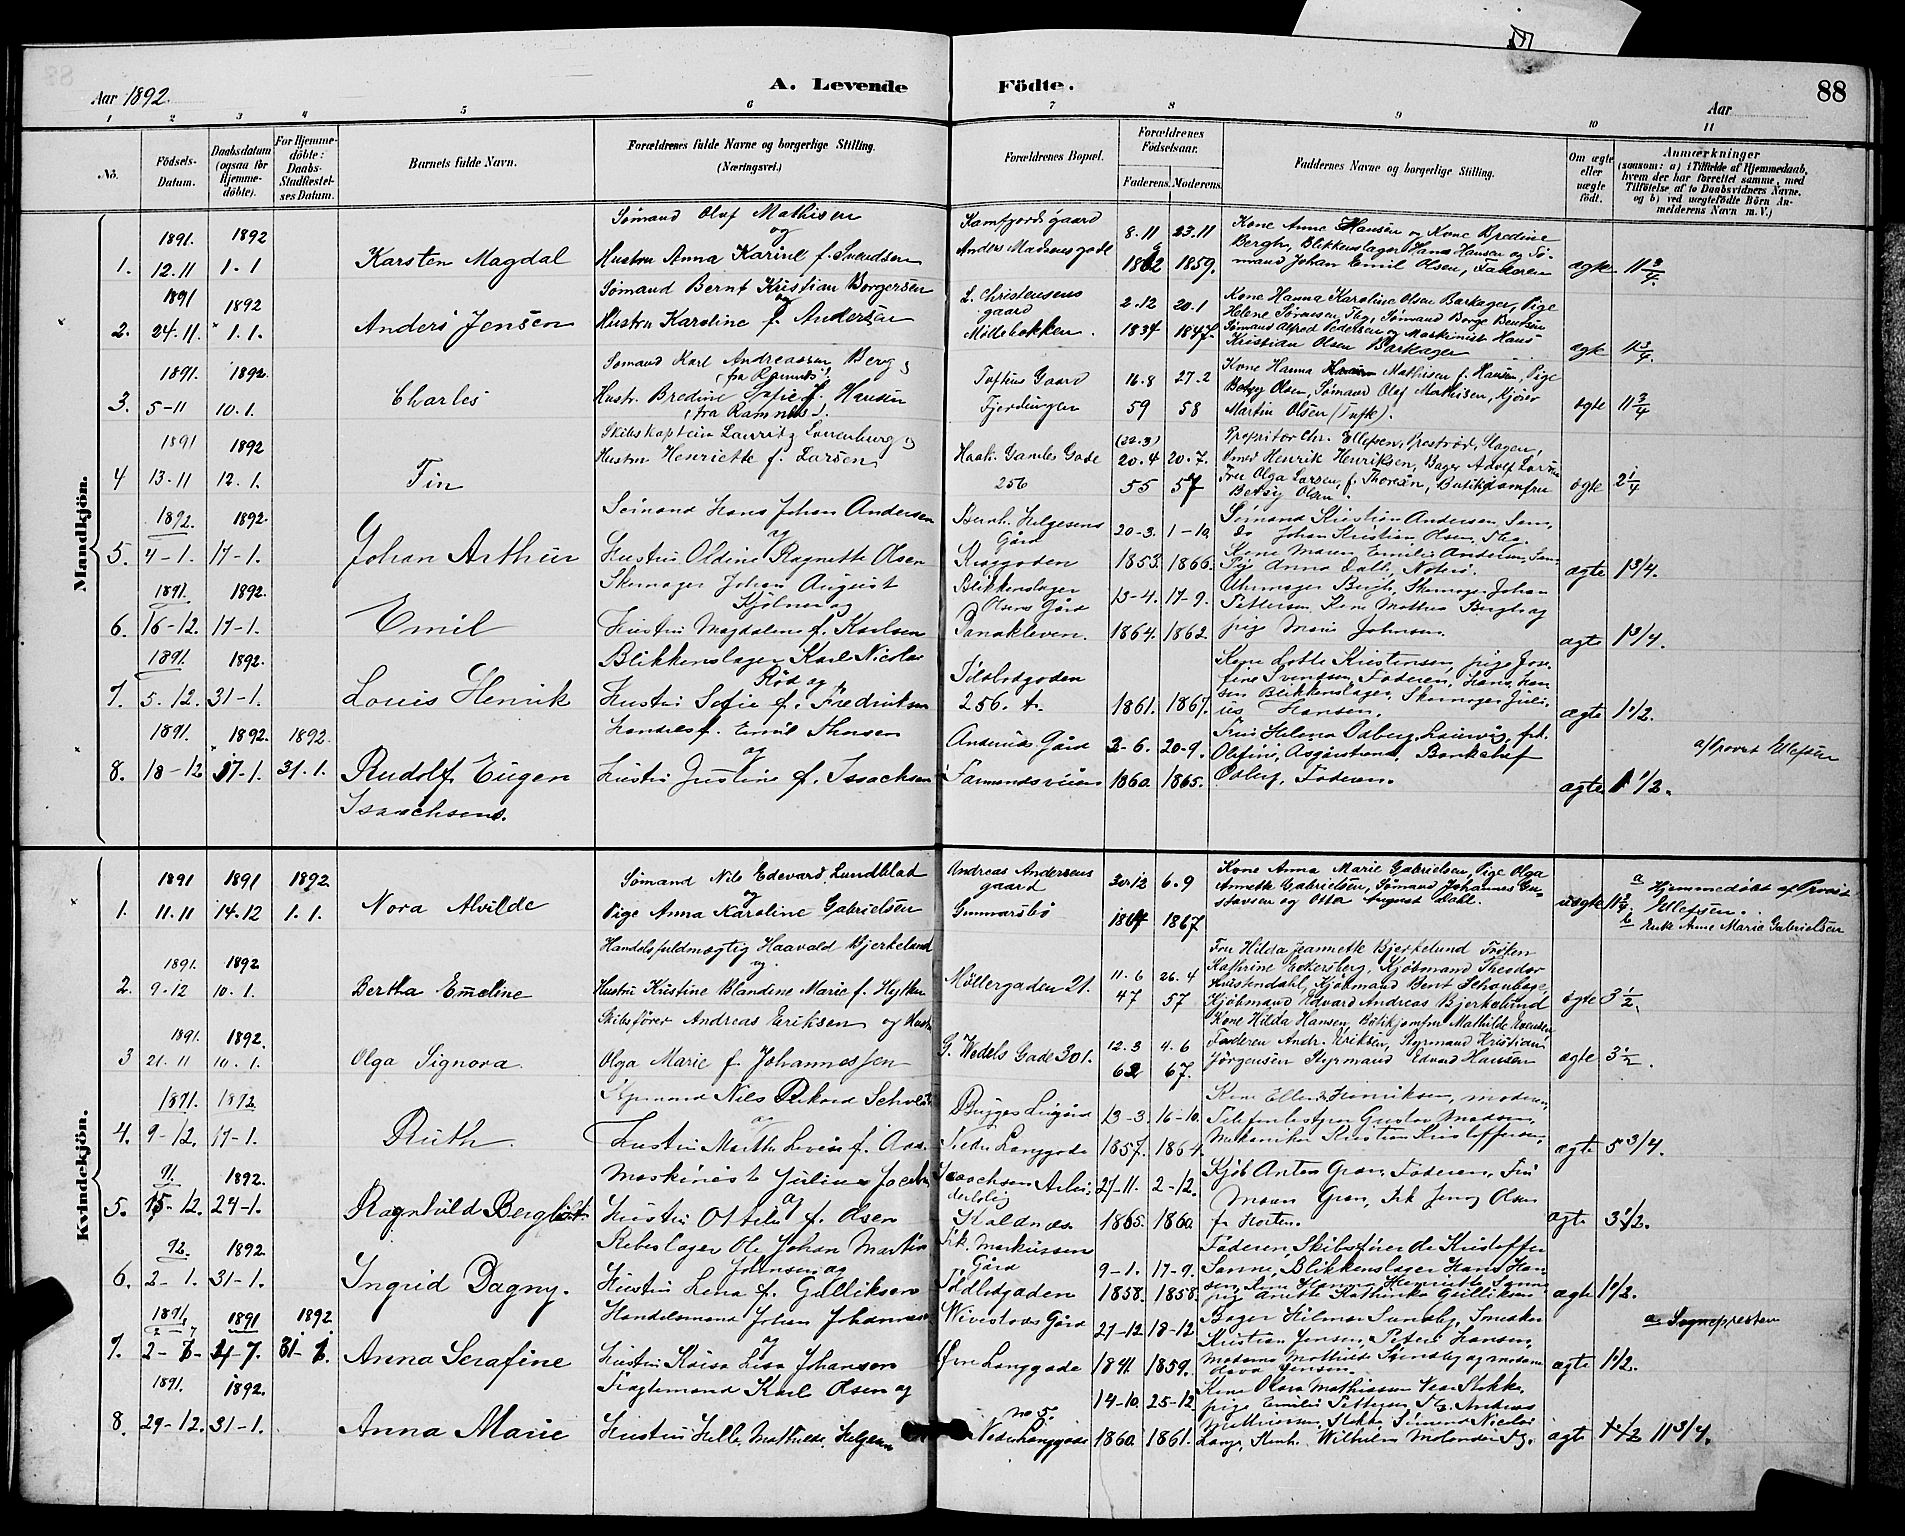 88
Aar 1892.
A. Levende Födte.
Aar
1 2 3 4 5 6 7 8 9 10 11
No.
Födsels-Datum.
Daabsdatum (ogsaa for Hjemme-döbte).
For Hjemme-döbte: Daabs-Stadfæstel-ses Datum.
Barnets fulde Navn.
Forældrenes fulde Navne og borgerlige Stilling. (Næringsvei.)
Forældrenes Bopæl.
Forældrenes Födselsaar.
Faderens. Moderens.
Faddernes Navne og borgerlige Stilling.
Om ægte eller uægte födt.
Anmærkninger
(saasom: a) i Tilfælde af Hjemmedaab, hvem der har forrettet samme, med Tilföielse af to Daabsvidners Navne, og b) ved uægtefödte Börn An-melderens Navn m. V.)
Mandkjön.
1. 1891. 12.11 1892 1.1 Karsten Magdal
Sømand Olaf Mathisen
og
Hustru Anna Karine f. Svendsen
Kamfjords gaard
Anders Madsensgade
8.11 23.11
1862 1859.
Kone Anne Hansen og Kone Bredine
Bergh, Blikkenslager Hans Hansen og Sø-
mand Johan Emil Olsen, Faderen
ægte 11 3/4
2. 1891 24.11. 1892 1.1. Anders Jensen
Sømand Bernt Kristian Borgersen
og
Hustru Karoline f. Andersen
L. Christensens
gaard
Midtbakken.
2.12 20.1
1834 1847.
Kone Hanna Karoline Olsen Barkager, Pige
Helene Sørensen, Tbg, Sømand Borge Bentsen
Sømand Alfred Pedersen og Maskinist Hans
Kristian Olsen Barkager
ægte 11 3/4.
3. 1891. 5-11 1892. 10.1. Charles
Sømand Karl Andreassen Berg og
(fra Ramnes)
Hustr. Bredine Sofie f. Hansen
(fra Ramnes).
Toftens Gaard
Fjerdingen
16.8 27.2
59 58
Kone Hanna Mathisen f. Hansen, Pige
Betsy Olsen, Sømand Olaf Mathisen, Kjører
Martin Olsen (Tufte).
ægte 11 3/4
4 1891 13-11 1892 12.1. Fin
Skibskaptein Lauritz Sørenburg og
Hustru Henriette f. Larsen
Haak. Gamles Gade
256
(22.3)
20.4 20.7.
55 57
Propritær Chr. Ellefsen, Prestrød, Slagen,
Smed Henrik Henriksen, Bager Adolf Larsen
Fru Olga Larsen, f. Thoresen, Butikjomfru
Betsy Olsen.
ægte 2 1/4
5. 1892. 4-1. 1892. 17-1. Johan Arthur
Sømand Hans Johan Andersen
og
Hustru Oldine Ragnette Olsen
Bernh. Helgesens
Gård
20-3. 1-10.
1853. 1866.
Sømand Kristian Andersen, Sem,
do Johan Kristian Olsen, Tbg.
Kone Maren Emilie Andersen, Sem
Pige Anna Dall, Nøterø.
ægte 1 3/4.
6. 1891. 16-12. 1892. 17-1. Emil
Skomager Johan August
Kjølner og
Hustru Magdalene f. Karlsen
Blikkenslager
Olsens Gård
Danakleven.
13-4. 17-9.
1864. 1862
Uhrmager Bergh, Skomager Johan
Pettersen, Kone Mathea Bergh og
pige Marie Johnsen.
ægte 1 3/4.
7. 1891. 5.12. 1892. 31-1. Louis Henrik
Blikkenslager Karl Nicolai
Rød og
Hustru Sofie f. Fredriksen
256. A.
1861. 1867.
Kone Lotte Kristensen, pige Jose-
fine Svendsen, Faderen, Hans Han-
sen Blikkenslager, Skomager Juli-
us Hansen.
ægte 1 1/2.
8. 1891. 18-12 1892. 17-1. 1892. 31.1. Rudolf Eugen
Isaachsen.
Handelsf. Emil Thorsen
og
Hustru Justine f. Isachsen
Anderses Gård
Farmandsveien
2-6. 20-9.
1860. 1865.
Fru Helena Odberg, Laurvig, frk.
Olafine, Asgårdstrand, Bankchef
Odberg, Faderen.
ægte 1 1/2.
a) provst Ellefsen
Kvindekjön.
1. 1891 11.11 1891 14.12 1892. 1.1. Nora Alvilde
Sømand Nils Edevard Lundblad
og
Pige Anna Karoline Gabrielsen
Andreas Andersens
gaard
Gunnarsbø
30.12 6.9
1864 1867
Kone Anna Marie Gabrielsen, Pige Olga
Annette Gabrielsen, Sømand Johannes Gu-
stavsen og Otto August Dahl.
uægte
a Hjemmedøbt af Provst
Ellefsen.
b Enke Anne Marie Gabrielsen
2. 1891. 9-12 1892 10.1. Bertha Emeline
Handelsfuldmægtig Haavald Bjerkelund
og
Hustru Kristine Blandine Marie f. Hytten
Møllergaden 21.
11.6 26.4
47 57
Fru Hilda Jeannette Bjerkelund Frøken
Kathrine Eckersberg, Kjøbmand Theodor
Kvistendahl, Kjøbmand Bent Schanbage,
Kjøbmand Edvard Andreas Bjerkelund
ægte 3 1/2.
3 1891. 21.11 1892. 10.1. Olga Signora
Skibsfører Andreas Eriksen og Hustru
Olga Marie f. Johannessen
G. Wedels Gade 301.
12.3 4.6
62 67.
Kone Hilda Hansen, Butikjomfru Mathilde Evensen
Faderen Andr. Eriksen, Styrmand Kristian
Jørgensen Styrmand Edvard Hansen
ægte 3 1/2.
4. 1891. 9-12. 1892 17-1. Ruth.
Styrmand Nils Rikard
og
Hustru Marthe Lovise f.
Bugges Leigård
Nedre Langgade
13-3. 16-10.
1857. 1864.
Kone Ellen Henriksen, moderen,
Telefonbestyrer Gustav Madsen,
Mekaniker Kristian Kristoffersen,
ægte 5 3/4.
5. 91. 15-12. 1892. 24-1. Ragnhild Bergliot
Maskinist Julius Jacobsen
og
Hustru Ottilie f. Olsen
Isaachsen Arbei-
derbolig
Kaldnæs
27-11. 2-12.
1865. 1860.
Kjøb. Anton Gran, Faderen, Fru
Maren Gran, Frk Jenny Olsen
fr Horten.
ægte 3 1/2.
6. 92. 2-1. 1892. 31-1. Ingrid Dagny.
Rebslager Ole Johan Martin
Johnsen og
Hustru Lena f. Gulliksen
Frk. Markussen
Gård
9-1. 17-9.
1858. 1858.
Faderen, Skibsfører Kristoffer
Sanne, Blikkenslager Hans Han-
sen, Kone Hanna Henriette Sanne
pige Anette Kathinka Gulliksen
ægte 1 1/2.
7. 1891, 2-7- 1891 4-7. 1892 31-1. Anna Serafine
Handelsmand Johan Johannsen
og
Hustru Kaisa Lisa Johansen
Wivestads Gård
Øvre Langgade
27-12 18-12
1841. 1859.
Bager Hilmar Sundby, Snedker
Kristian Jensen, Peter Hansen,
Madame Mathilde Sundby og madame
Jensen.
ægte 1 1/2.
a. Sognepresten
8. 1891. 29-12. 1892. 31-1. Anna Marie
Fragtemand Karl Olsen og
Hustru Helle Mathilde Helgesen
no 5.
Nedre Langgade
14-10. 25-12.
1860. 1861.
Kone Olava Mathiassen Vear Stokke,
pige Emilie Pettersen, Tbg. Andreas
Mathiassen, Stokke, Sømand Nicolai
Lange, Wilhelm Molander Tbg.
ægte 11 3/4.